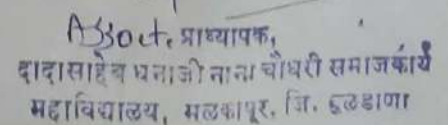 Assoct. प्राध्यापक,
दादासाहेब धनाजी नाना चौधरी समाजकार्य
महाविद्यालय, मलकापूर, जि. बुलडाणा